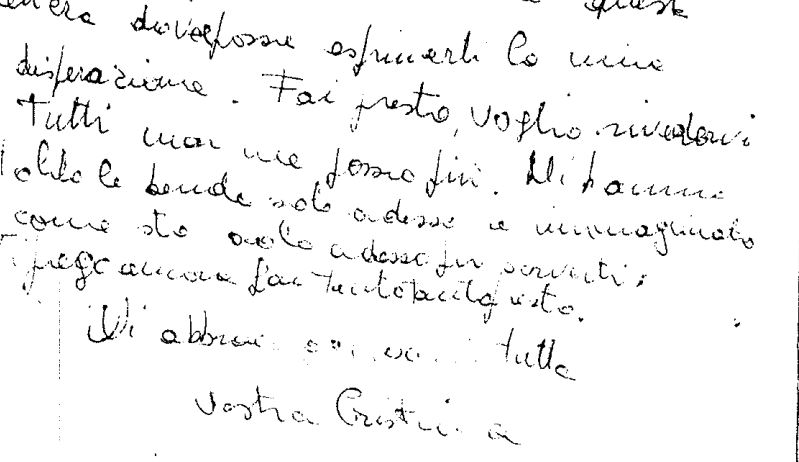 queste
dove possa esprimerti la mia
disperazione. Fai presto, voglio rivedervi
tutti non ne posso più. Mi hanno
tolto le bende solo adesso e immaginate
come sto solo adesso per scriverti.
Ti prego amore fai tutto presto.
Vi abbraccio tutti
vostra Cristina